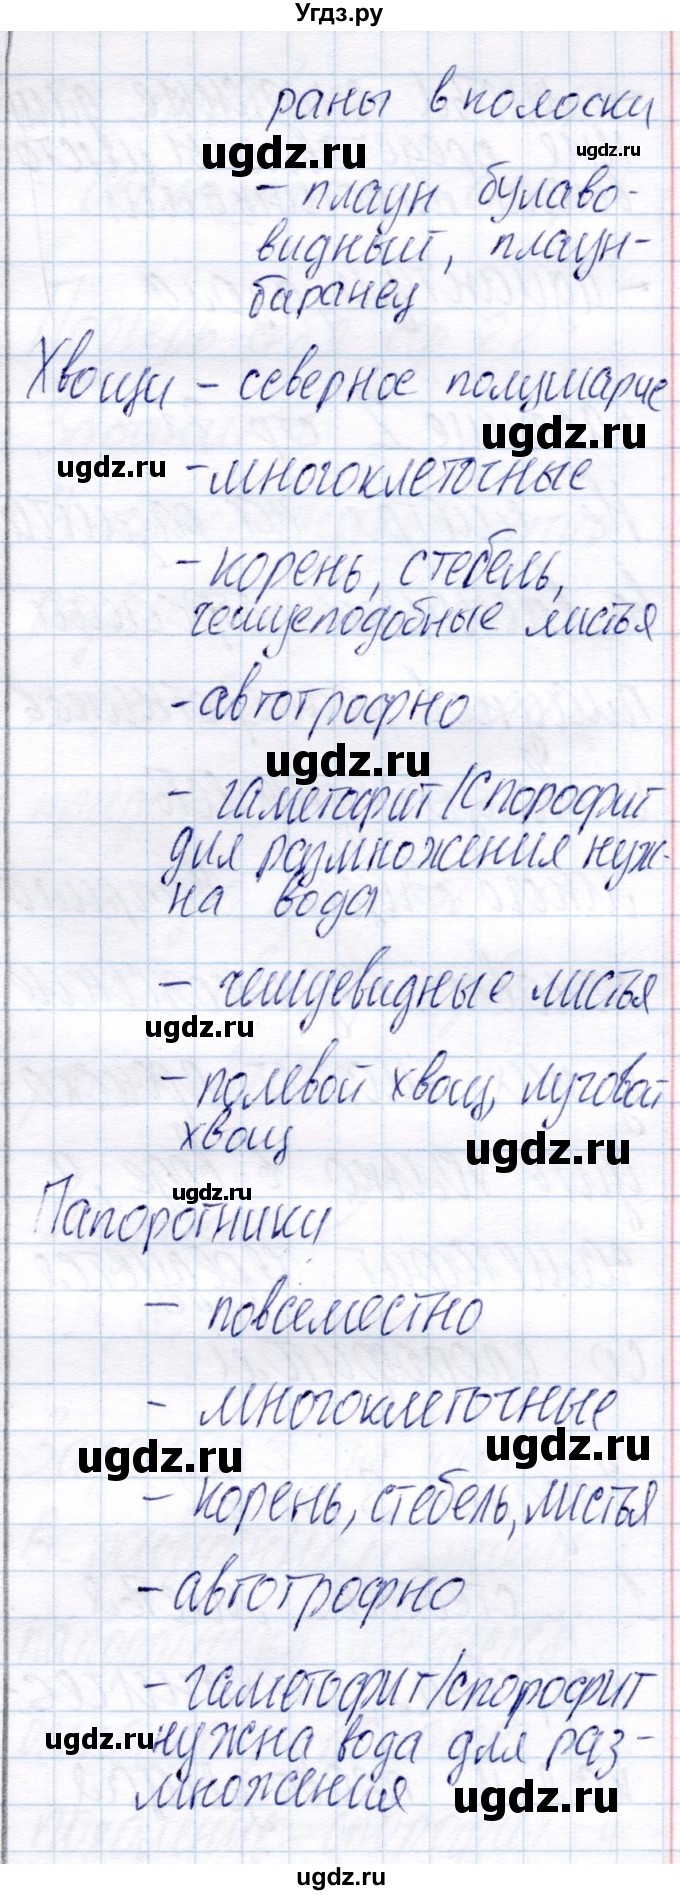 Угдз.ру
раны в полоски
ugdz.ru ugdz.ru
- плаун булаво-
видный, плаун-
баранец
Хвощи - северное полушарие
ugdz.ru
ugdz.ru
- многоклеточные
- корень, стебель,
чешуеподобные листья
- автотрофно
ugdz.ru
- гаметофит/спорофит
для размножения нуж-
на вода
- чешуевидные листья
ugdz.ru
- полевой хвощ, луговой
хвощ
ugdz.ru
ugdz.ru
Папоротники
- повсеместно
- многоклеточные
ugdz.ru ugdz.ru
- корень, стебель, листья
- автотрофно
- гаметофит/спорофит
ugdz.ru
нужна вода для раз-
множения
ugdz.ru
ugdz.ru